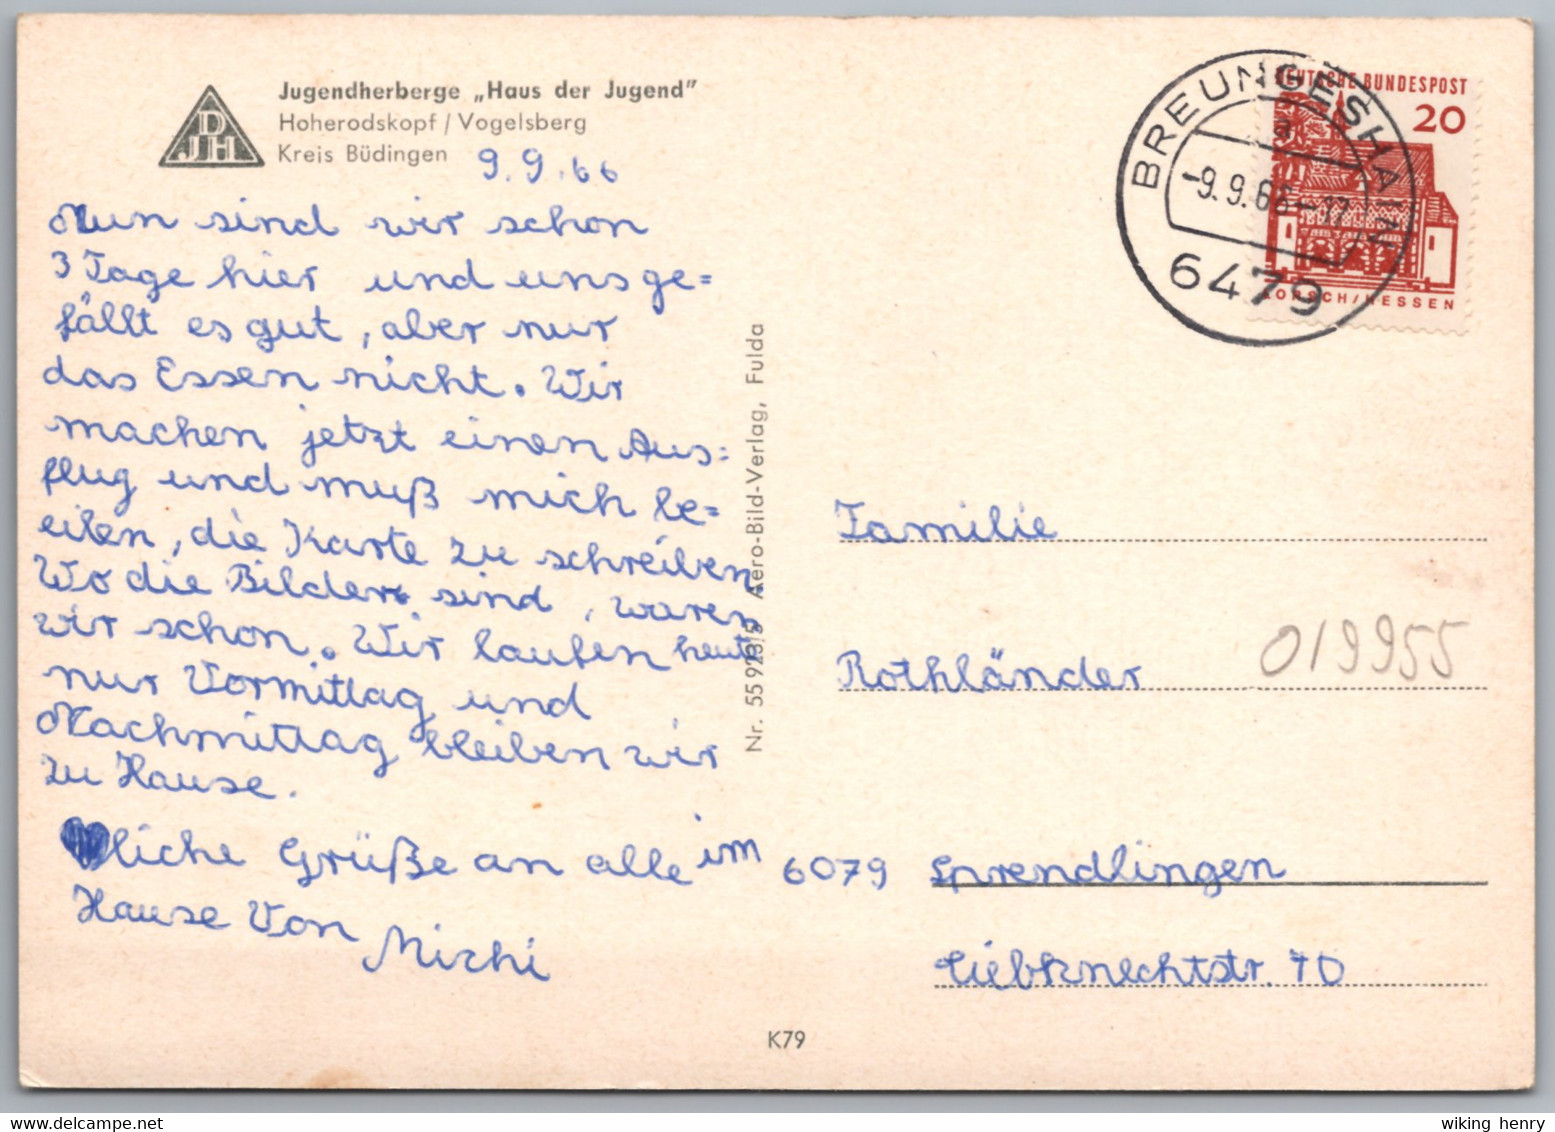 Jugendherberge „Haus der Jugend"
Hoherodskopf / Vogelsberg
Kreis Büdingen
DJH
9.9.66
Nun sind wir schon
3 Tage hier und uns ge=
fällt es gut, aber nur
das Essen nicht. Wir
machen jetzt einen Aus=
flug und muß mich be=
eilen, die Karte zu schreiben
Wo die Bilder sind, waren
wir schon. Wir laufen heute
nur Vormittag und
Nachmittag bleiben wir
zu Hause.
♥liche Grüße an alle im
Hause Von Michi
Nr. 55 923/5 Aero-Bild-Verlag, Fulda
K79
DEUTSCHE BUNDESPOST
20
LORSCH/HESSEN
BREUNGESHAIN
a
-9.9.66-17
6479
Familie
Rothländer
019955
6079 Sprendlingen
Liebknechtstr. 70
wiking henry